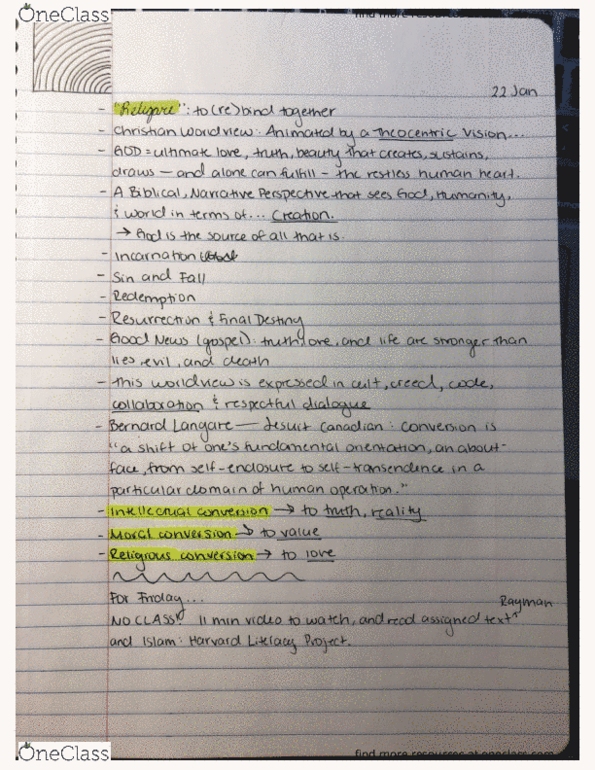 OneClass
find more resources
22 Jan
- "Religare": to (re)bind together
- Christian Worldview: Animated by a theocentric vision...
- GOD = ultimate love, truth, beauty that creates, sustains,
draws — and alone can fulfill — the restless human heart.
- A Biblical, Narrative Perspective that sees God, Humanity,
& world in terms of... Creation.
→ God is the source of all that is.
- Incarnation
- Sin and Fall
- Redemption
- Resurrection & Final Destiny
- Good News (gospel): truth, love, and life are stronger than
lies, evil, and death
- this worldview is expressed in cult, creed, code,
collaboration & respectful dialogue
- Bernard Langare — Jesuit Canadian: conversion is
"a shift of one's fundamental orientation, an about-
face, from self-enclosure to self-transendence in a
particular domain of human operation."
- Intellectual conversion → to truth, reality
- Moral conversion → to value
- Religious conversion → to love
For Friday...
Rayman
NO CLASS 11 min video to watch, and read assigned text^
and Islam: Harvard Literacy Project.
OneClass
find more resources at oneclass.com